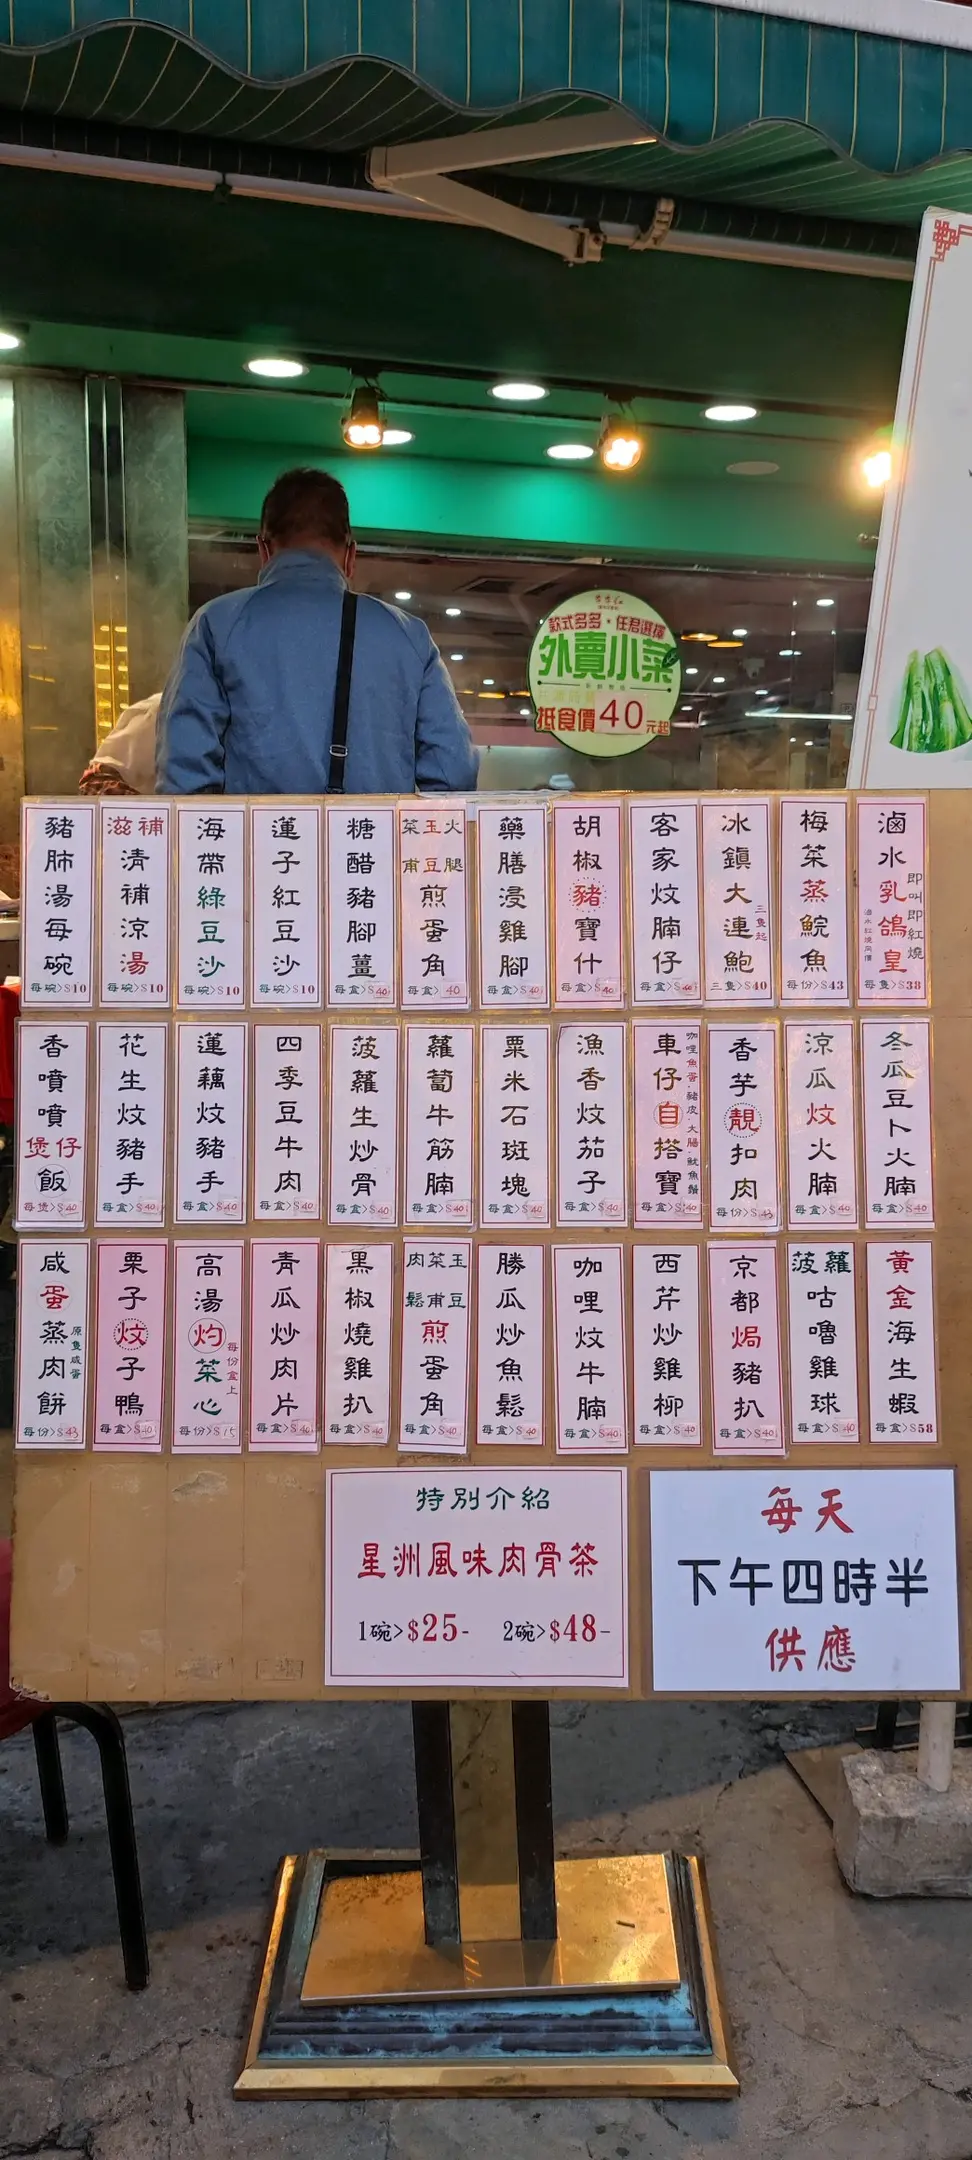 款式多多·任君選擇
外賣小菜
抵食價40元起
豬肺湯每碗
每碗>$10
滋補清補涼湯
每碗>$10
海帶綠豆沙
每碗>$10
蓮子紅豆沙
每碗>$10
糖醋豬腳薑
每盒>$40
菜甫玉豆火腿煎蛋角
每盒>40
藥膳浸雞腳
每盒>$40
胡椒豬寶什
每盒>$40
客家炆腩仔
每盒>$40
冰鎮大連鮑
三隻起
三隻>$40
梅菜蒸鯇魚
每份>$43
滷水乳鴿皇
即叫即紅燒
滷水紅燒同價
每隻>$38
香噴噴煲仔飯
每煲>$40
花生炆豬手
每盒>$40
蓮藕炆豬手
每盒>$40
四季豆牛肉
每盒>$40
菠蘿生炒骨
每盒>$40
蘿蔔牛筋腩
每盒>$40
粟米石斑塊
每盒>$40
漁香炆茄子
每盒>$40
車仔自搭寶
咖哩魚蛋·豬皮·大腸·魷魚鬚
每盒>$40
香芋靚扣肉
每份>$43
涼瓜炆火腩
每盒>$40
冬瓜豆卜火腩
每盒>$40
咸蛋蒸肉餅
原隻咸蛋
每份>$43
栗子炆子鴨
每盒>$40
高湯灼菜心
每份盒上
每份>$15
青瓜炒肉片
每盒>$40
黑椒燒雞扒
每盒>$40
肉鬆菜甫玉豆煎蛋角
每盒>$40
勝瓜炒魚鬆
每盒>$40
咖哩炆牛腩
每盒>$40
西芹炒雞柳
每盒>$40
京都焗豬扒
每盒>$40
菠蘿咕嚕雞球
每盒>$40
黃金海生蝦
每盒>$58
特別介紹
星洲風味肉骨茶
1碗>$25-　2碗>$48-
每天
下午四時半
供應